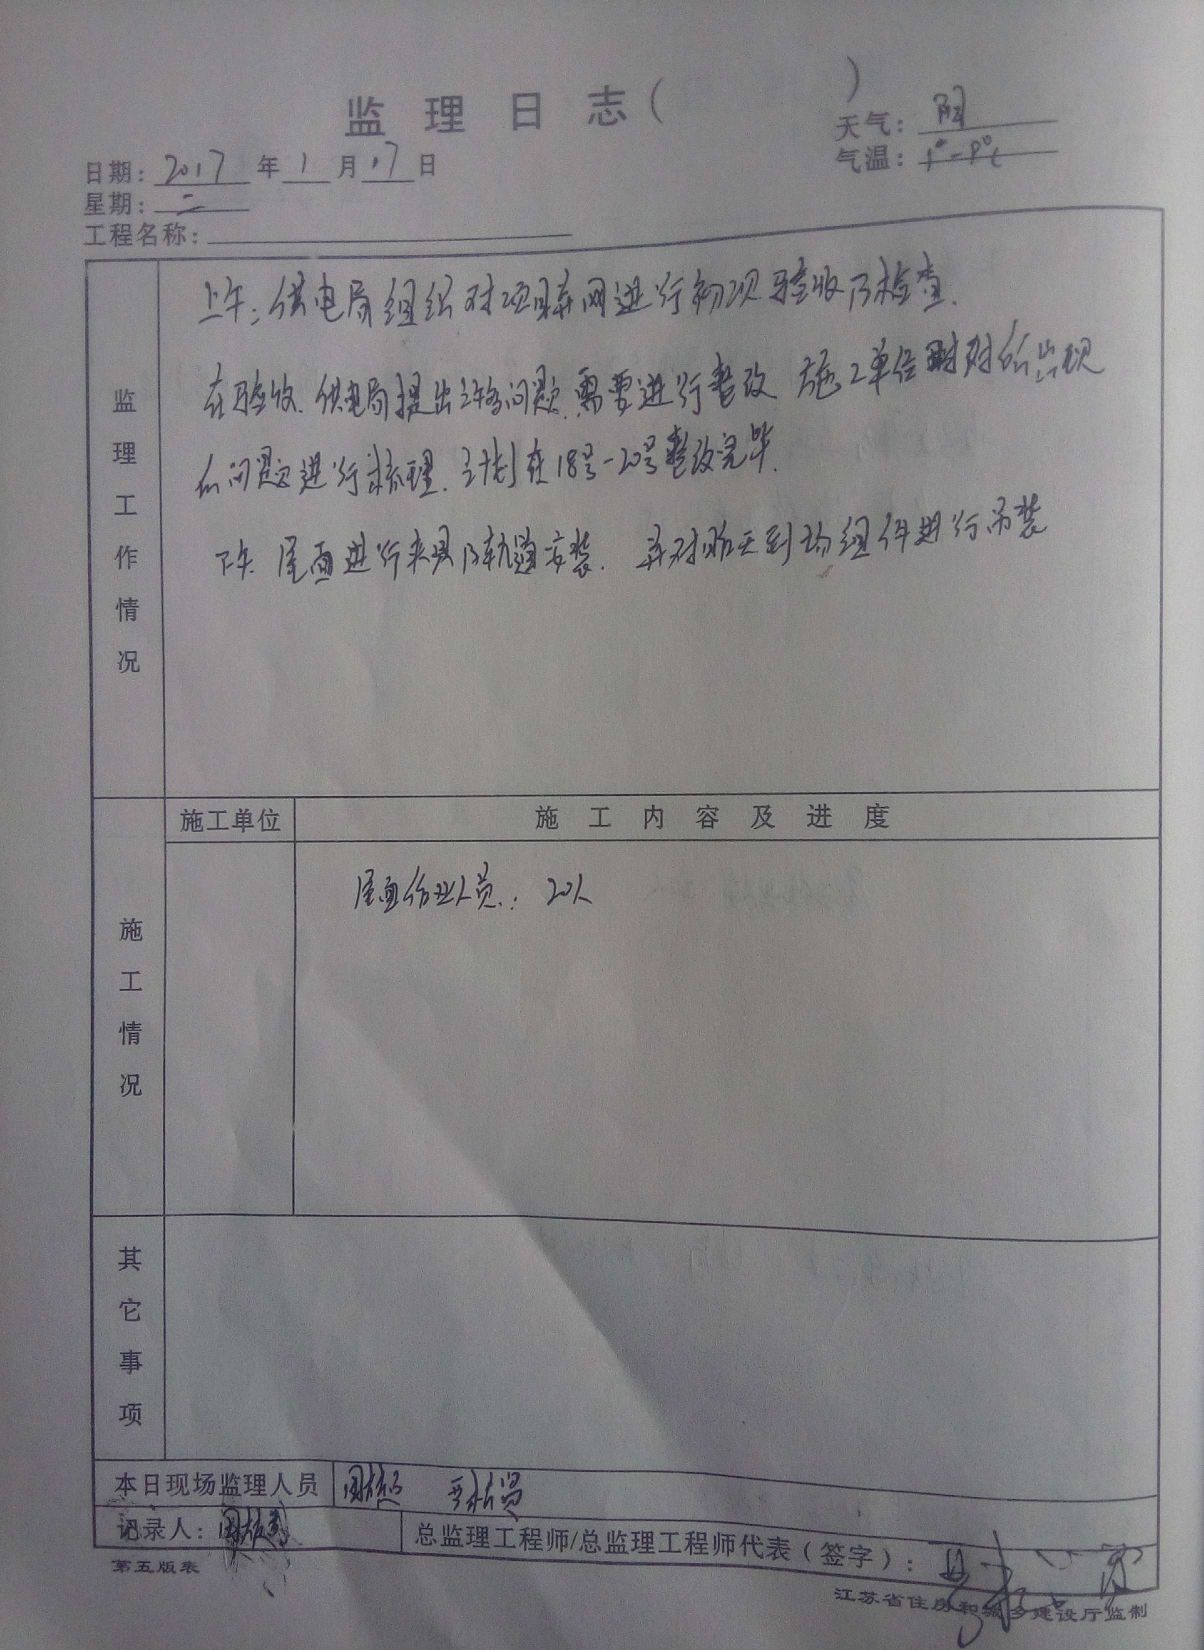 监理日志（　　）
天气：阴
气温：1°-8℃
日期：2017年1月17日
星期：二
工程名称：
监理工作情况
上午：供电局组织对项目并网进行初次验收及检查.
在验收.供电局提出许多问题.需要进行整改 施工单位对所出现
的问题进行梳理.计划在18号-20号整改完毕.
下午.屋面进行夹具及轨道安装.并对昨天到场组件进行吊装
施工单位 施工内容及进度
施工情况
屋面作业人员：20人
其它事项
本日现场监理人员
记录人：
总监理工程师/总监理工程师代表（签字）：
第五版表
江苏省住房和城乡建设厅监制